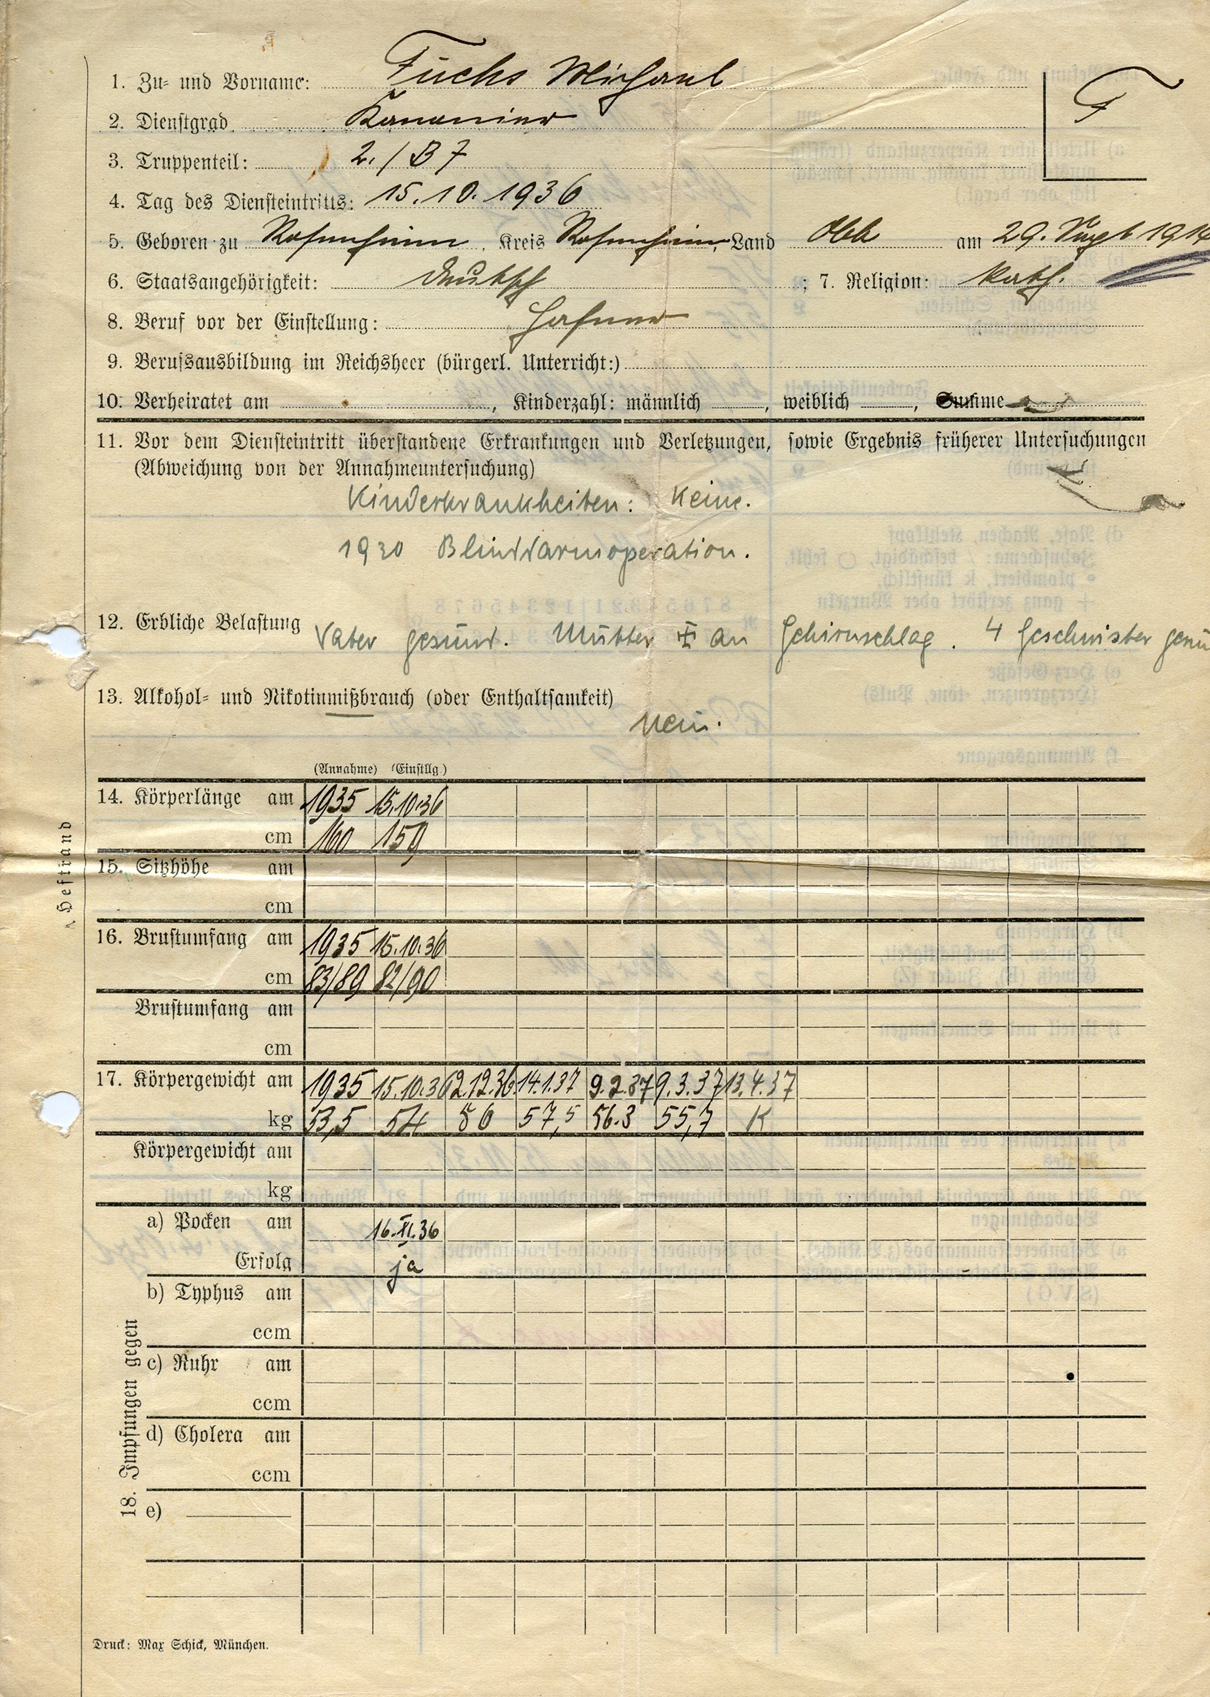 1. Zu- und Vorname: Fuchs Michael
F
2. Dienstgrad Kanonier
3. Truppenteil: 2./B7
4. Tag des Diensteintritts: 15.10.1936
5. Geboren zu Rosenheim, Kreis Rosenheim, Land Obb am 29. Sept 1914
6. Staatsangehörigkeit: deutsch; 7. Religion: kath.
8. Beruf vor der Einstellung: Hafner
9. Berufsausbildung im Reichsheer (bürgerl. Unterricht:)
10. Verheiratet am , Kinderzahl: männlich , weiblich , Summe
11. Vor dem Diensteintritt überstandene Erkrankungen und Verletzungen, sowie Ergebnis früherer Untersuchungen
(Abweichung von der Annahmeuntersuchung)
Kinderkrankheiten: Keine.
1930 Blinddarmoperation.
12. Erbliche Belastung Vater gesund. Mutter an Gehirnschlag. 4 Geschwister gesu
13. Alkohol- und Nikotinmißbrauch (oder Enthaltsamkeit)
Nein.
(Annahme) (Einstllg)
14. Körperlänge am 1935 15.10.36
cm 160 159
15. Sitzhöhe am
cm
16. Brustumfang am 1935 15.10.36
cm 83/89 82/90
Brustumfang am
cm
17. Körpergewicht am 1935 15.10.36 2.12.36. 14.1.37 9.2.37 9.3.37 13.4.37
kg 53,5 54 56 57,5 56.3 55,7 K
Körpergewicht am
kg
18. Impfungen gegen
a) Pocken am 16.XI.36
Erfolg ja
b) Typhus am
ccm
c) Ruhr am
ccm
d) Cholera am
ccm
e)
Heftrand
Druck: Max Schick, München.